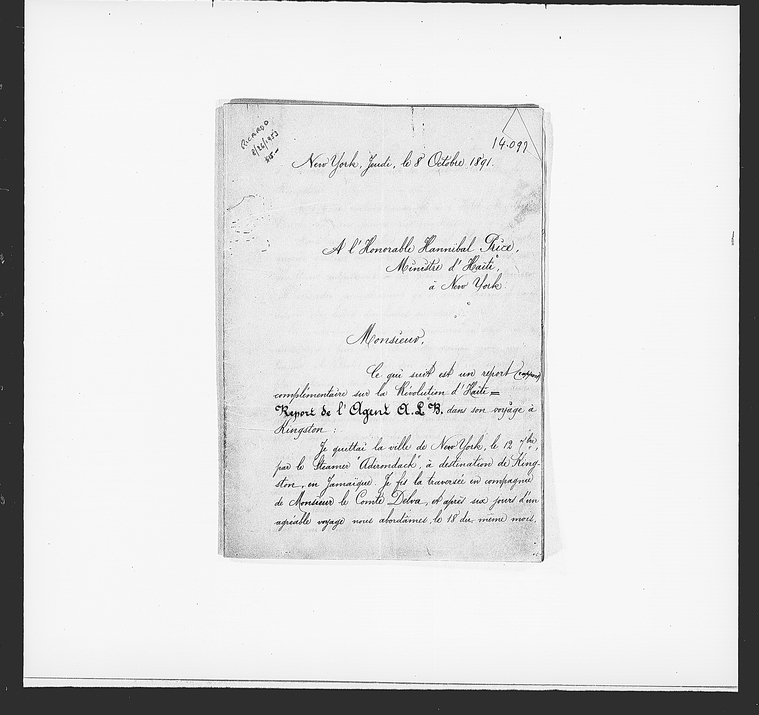 RICARDO
8/26/1953
$15-
14.099
New York, Jeudi, le 8 Octobre 1891.
A l'Honorable Hannibal Price,
Ministre d'Haïti,
à New York.
Monsieur,
Ce qui suit est un report (rapport)
complémentaire sur la Révolution d'Haïti =
Report de l'Agent A.L.B. dans son voyâge à
Kingston :
Je quittai la ville de New York, le 12 7bre,
par le Steamer "Adirondack", à destination de King-
ston, en Jamaïque. Je fis la traversée en compagnie
de Monsieur le Comte Delva, et après six jours d'un
agréable voyage nous abordâmes, le 18 du même mois,